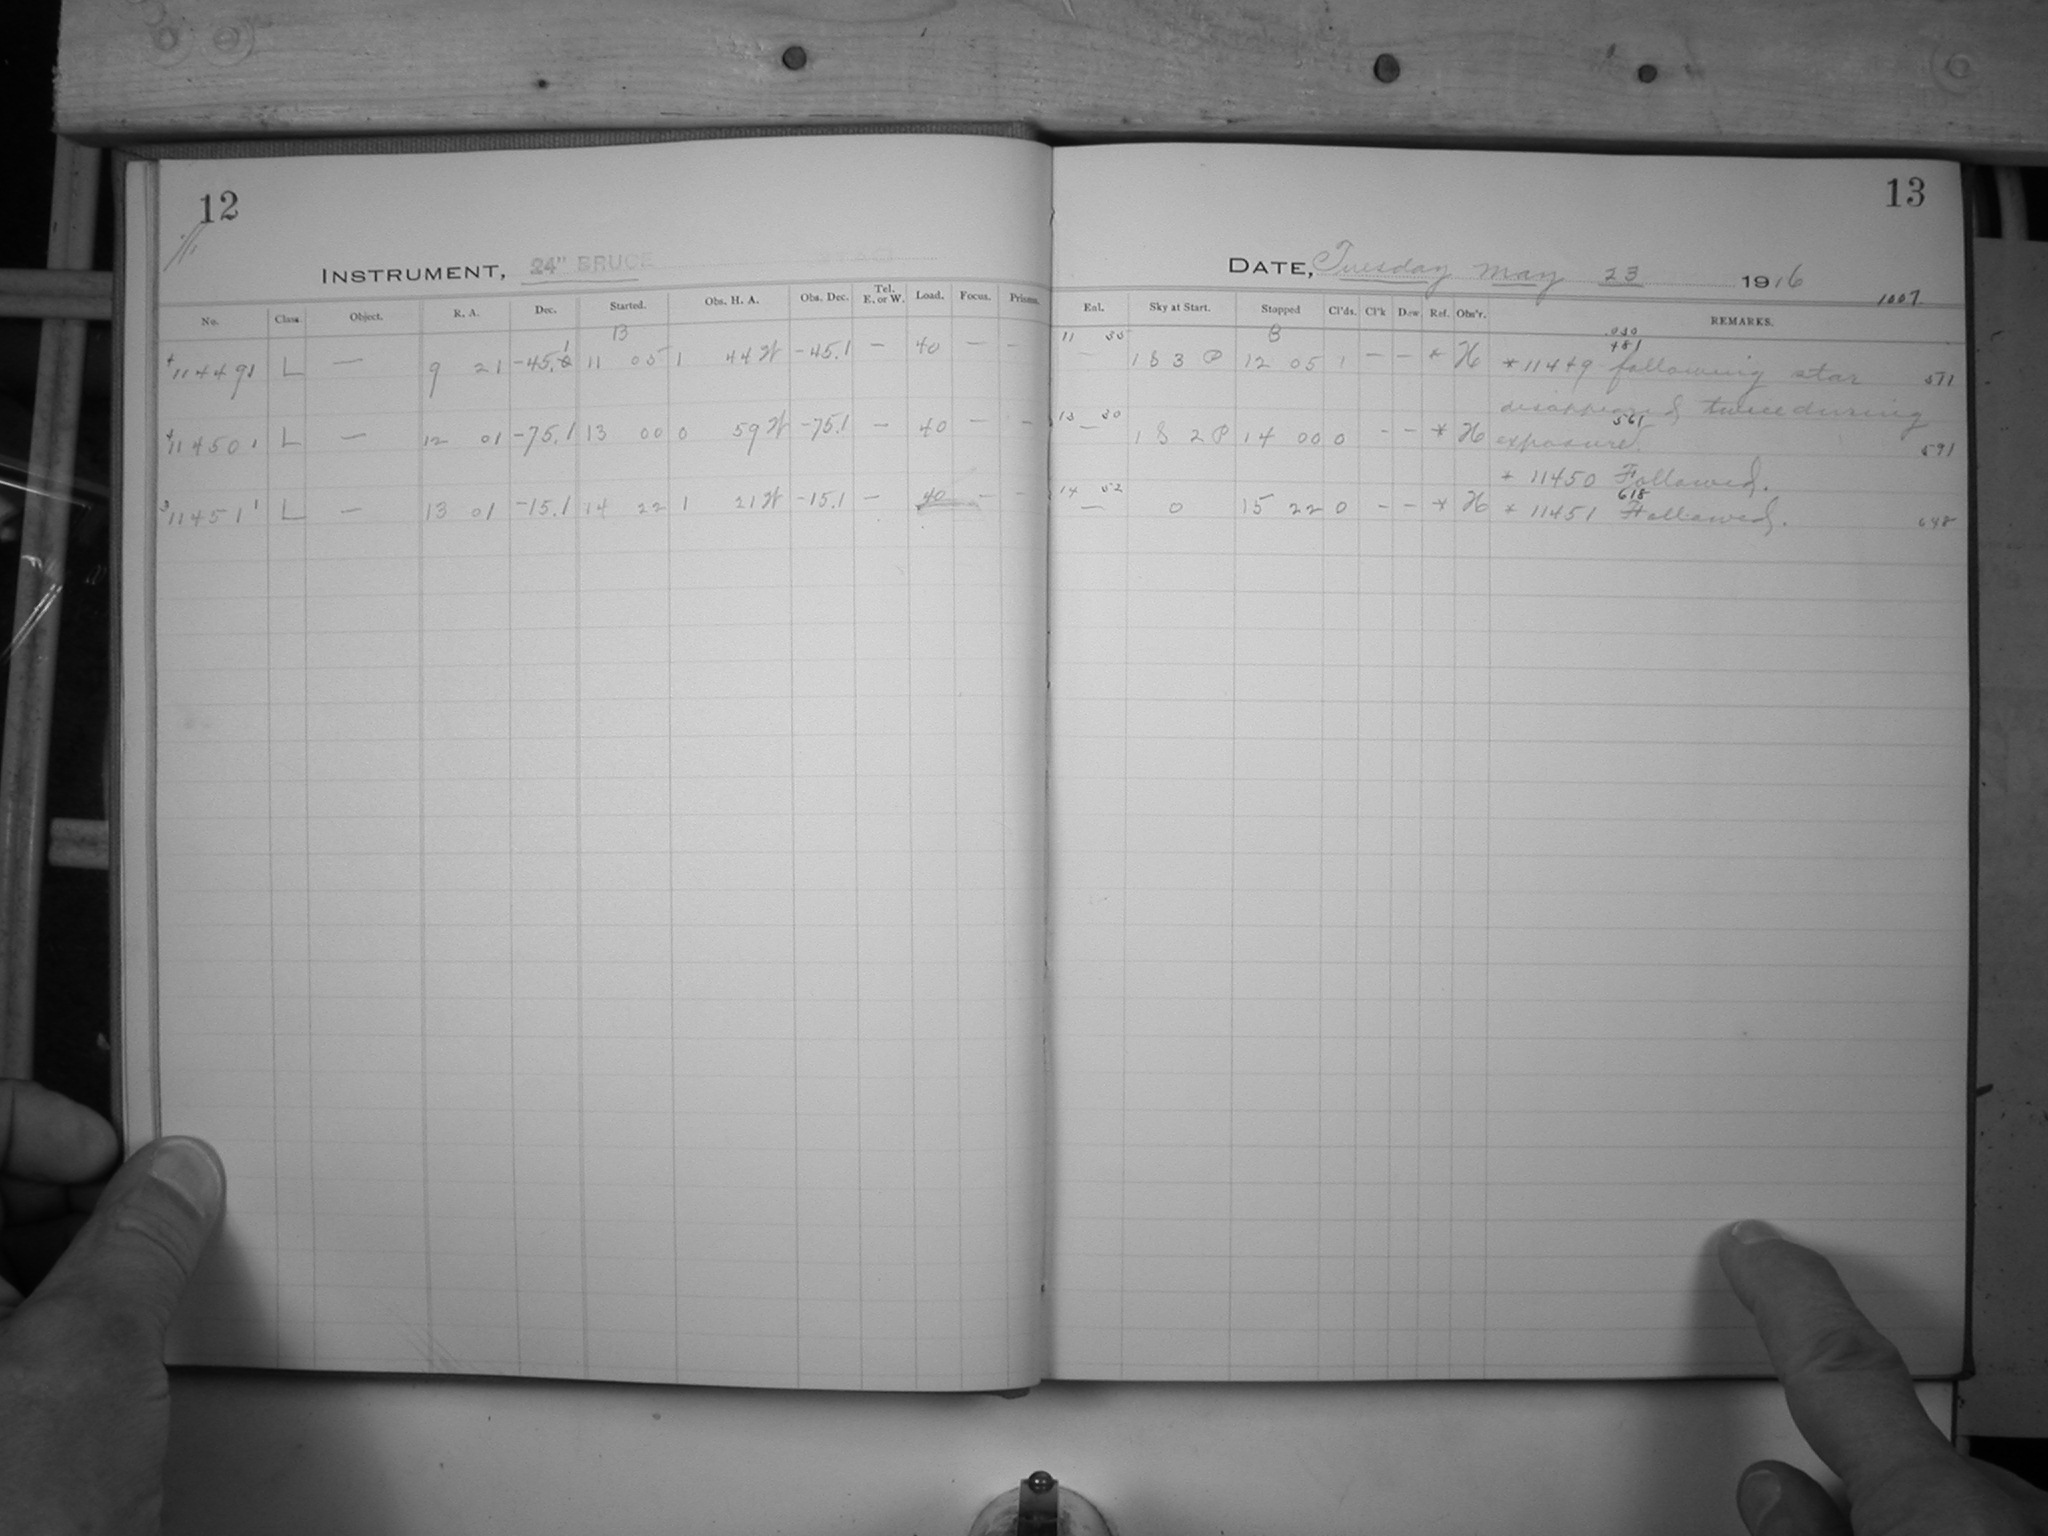 12
INSTRUMENT, 24" BRUCE
No. Class. Object. R. A. Dec. Started. Obs. H. A. Obs. Dec. Tel. E. or W. Load. Focus. Prisms.
13
11449 L — 9 21 -45.1 11 05 1 44 W -45.1 — 40 — —
11450 L — 12 01 -75.1 13 00 0 59 W -75.1 — 40 — —
11451 L — 13 01 -15.1 14 22 1 21 W -15.1 — 40 — —
13
DATE, Tuesday May 23 1916
1007
Exl. Sky at Start. Stopped Cl'ds. Cl'k Dew Ref. Obs'r. REMARKS.
11 35
— 1 S 3 P 12 05 1 — — * H * 11449 following star 511
disappeared twice during
13 30 561
— 1 S 2 P 14 00 0 - - * H exposure. 591
* 11450 Followed.
14 52 618
— 0 15 22 0 - - * H * 11451 Followed. 648